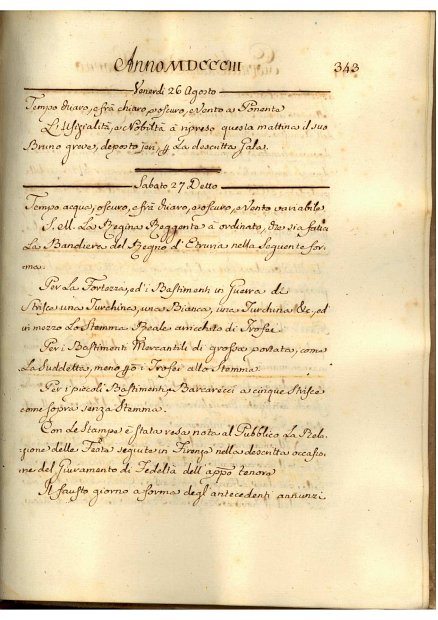 Anno MDCCCIII 343
Venerdi 26 Agosto
Tempo chiaro, e frà chiaro, e oscuro, e Vento a Ponente
L'Ufizialità, e Nobiltà à ripreso questa mattina il suo
Bruno greve, deposto jeri, p La descritta Gala.
Sabato 27 Detto
Tempo acqua, oscuro, e frà chiaro, e oscuro, e Vento variabile
S. M. La Regina Reggente à ordinato, che sia fatta
La Bandiera del Regno d'Etruria nella Seguente for,
ma.
Per La Fortezza, ed i Bastimenti in Guerra de
Strisce una Turchina, una Bianca, una Turchina &c, ed
in mezzo Lo Stemma Reale arricchito di Trofei
Per i Bastimenti Mercantili di grossa portata, come
La Suddetta, meno gli i Trofei allo Stemma.
Per i piccoli Bastimenti, Barcarecci a cinque Strisce
come sopra senza Stemma.
Con Le Stampe è stata resa nota al Pubblico La Rela,
zione delle Feste seguite in Firenze nella descritta occasio,
ne del Giuramento di Fedeltà dell'appo tenore
Il fausto giorno a forma degl'antecedenti annunzi